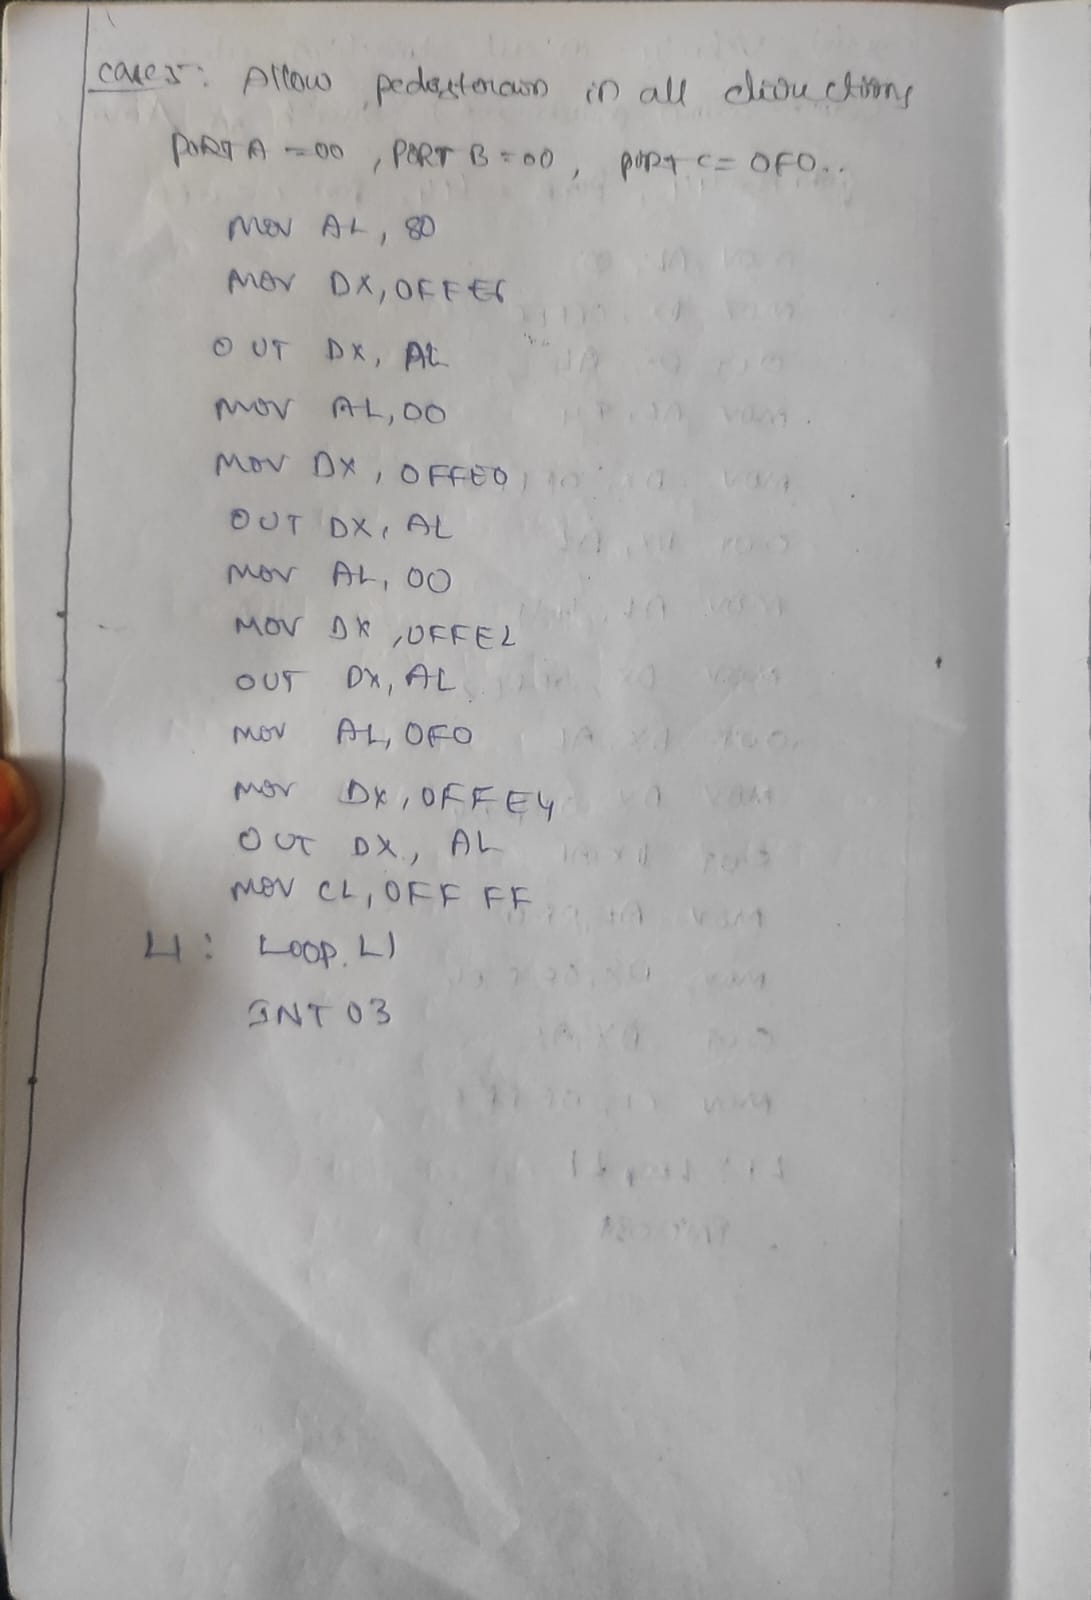 case5: Allow pedestorians in all directions
PORT A = 00, PORT B = 00, PORT C = 0F0..
MOV AL, 80
MOV DX, 0FFE6
OUT DX, AL
MOV AL, 00
MOV DX, 0FFE0
OUT DX, AL
MOV AL, 00
MOV DX, 0FFE2
OUT DX, AL
MOV AL, 0F0
MOV DX, 0FFE4
OUT DX, AL
MOV CL, 0FF FF
L1: LOOP L1
INT 03